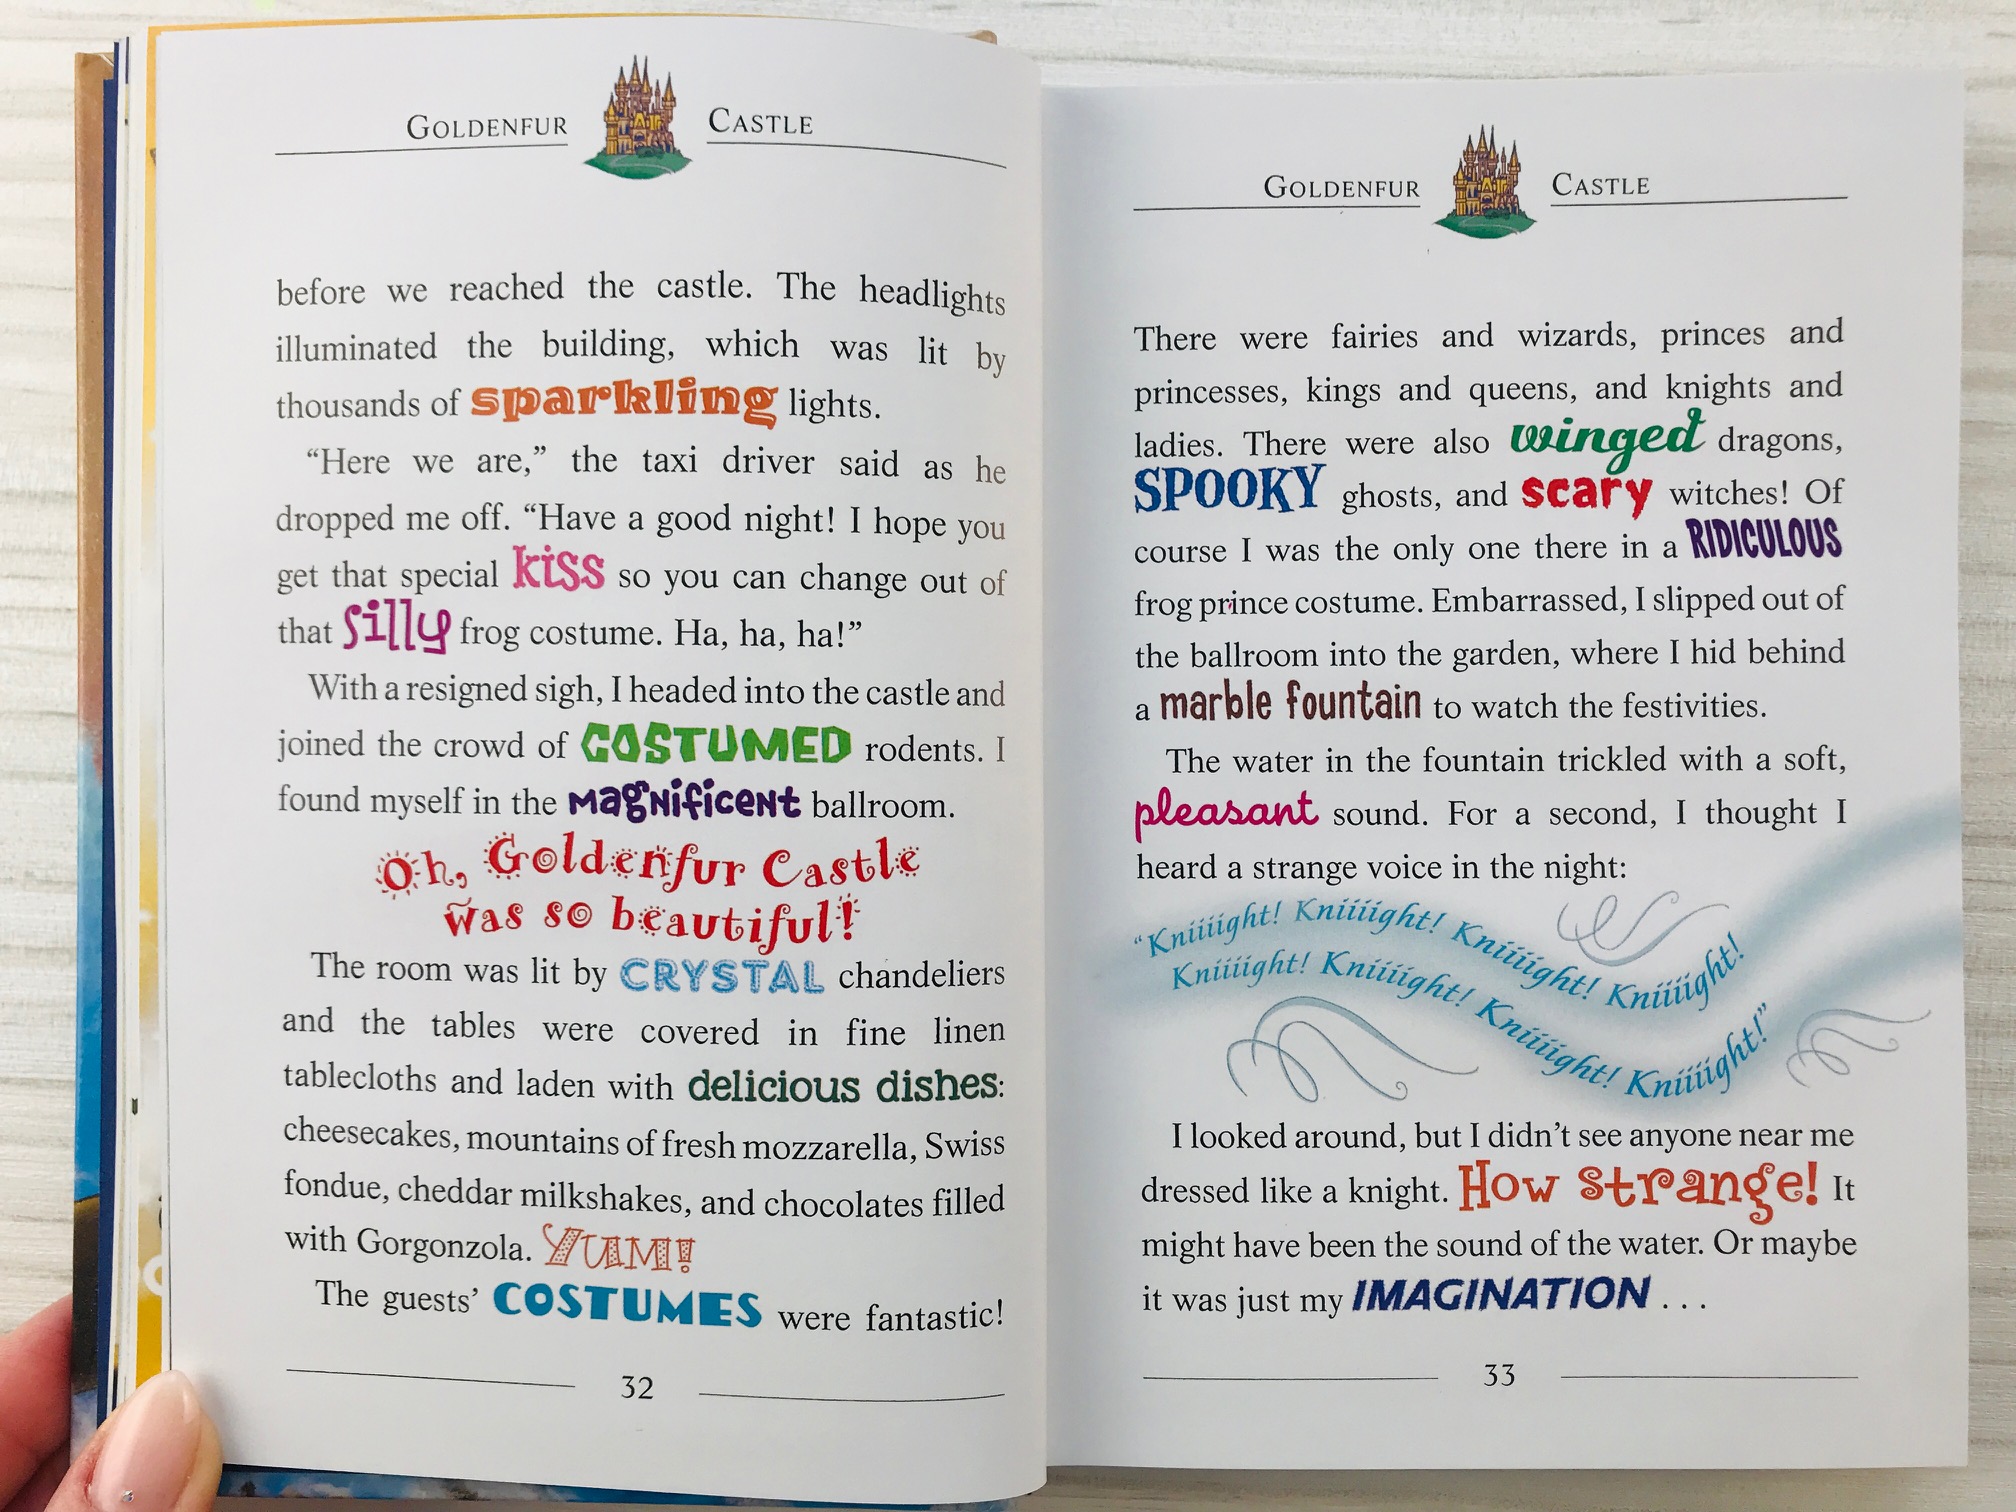 GOLDENFUR CASTLE
before we reached the castle. The headlights
illuminated the building, which was lit by
thousands of sparkling lights.
“Here we are,” the taxi driver said as he
dropped me off. “Have a good night! I hope you
get that special kiss so you can change out of
that silly frog costume. Ha, ha, ha!”
With a resigned sigh, I headed into the castle and
joined the crowd of COSTUMED rodents. I
found myself in the magnificent ballroom.
Oh, Goldenfur Castle
was so beautiful!
The room was lit by CRYSTAL chandeliers
and the tables were covered in fine linen
tablecloths and laden with delicious dishes:
cheesecakes, mountains of fresh mozzarella, Swiss
fondue, cheddar milkshakes, and chocolates filled
with Gorgonzola. YUM!
The guests’ COSTUMES were fantastic!
32
GOLDENFUR CASTLE
There were fairies and wizards, princes and
princesses, kings and queens, and knights and
ladies. There were also winged dragons,
SPOOKY ghosts, and scary witches! Of
course I was the only one there in a RIDICULOUS
frog prince costume. Embarrassed, I slipped out of
the ballroom into the garden, where I hid behind
a marble fountain to watch the festivities.
The water in the fountain trickled with a soft,
pleasant sound. For a second, I thought I
heard a strange voice in the night:
“Kniiiight! Kniiiight! Kniiiight! Kniiiight!
Kniiiight! Kniiiight! Kniiiight! Kniiiight!”
I looked around, but I didn’t see anyone near me
dressed like a knight. How strange! It
might have been the sound of the water. Or maybe
it was just my IMAGINATION . . .
33